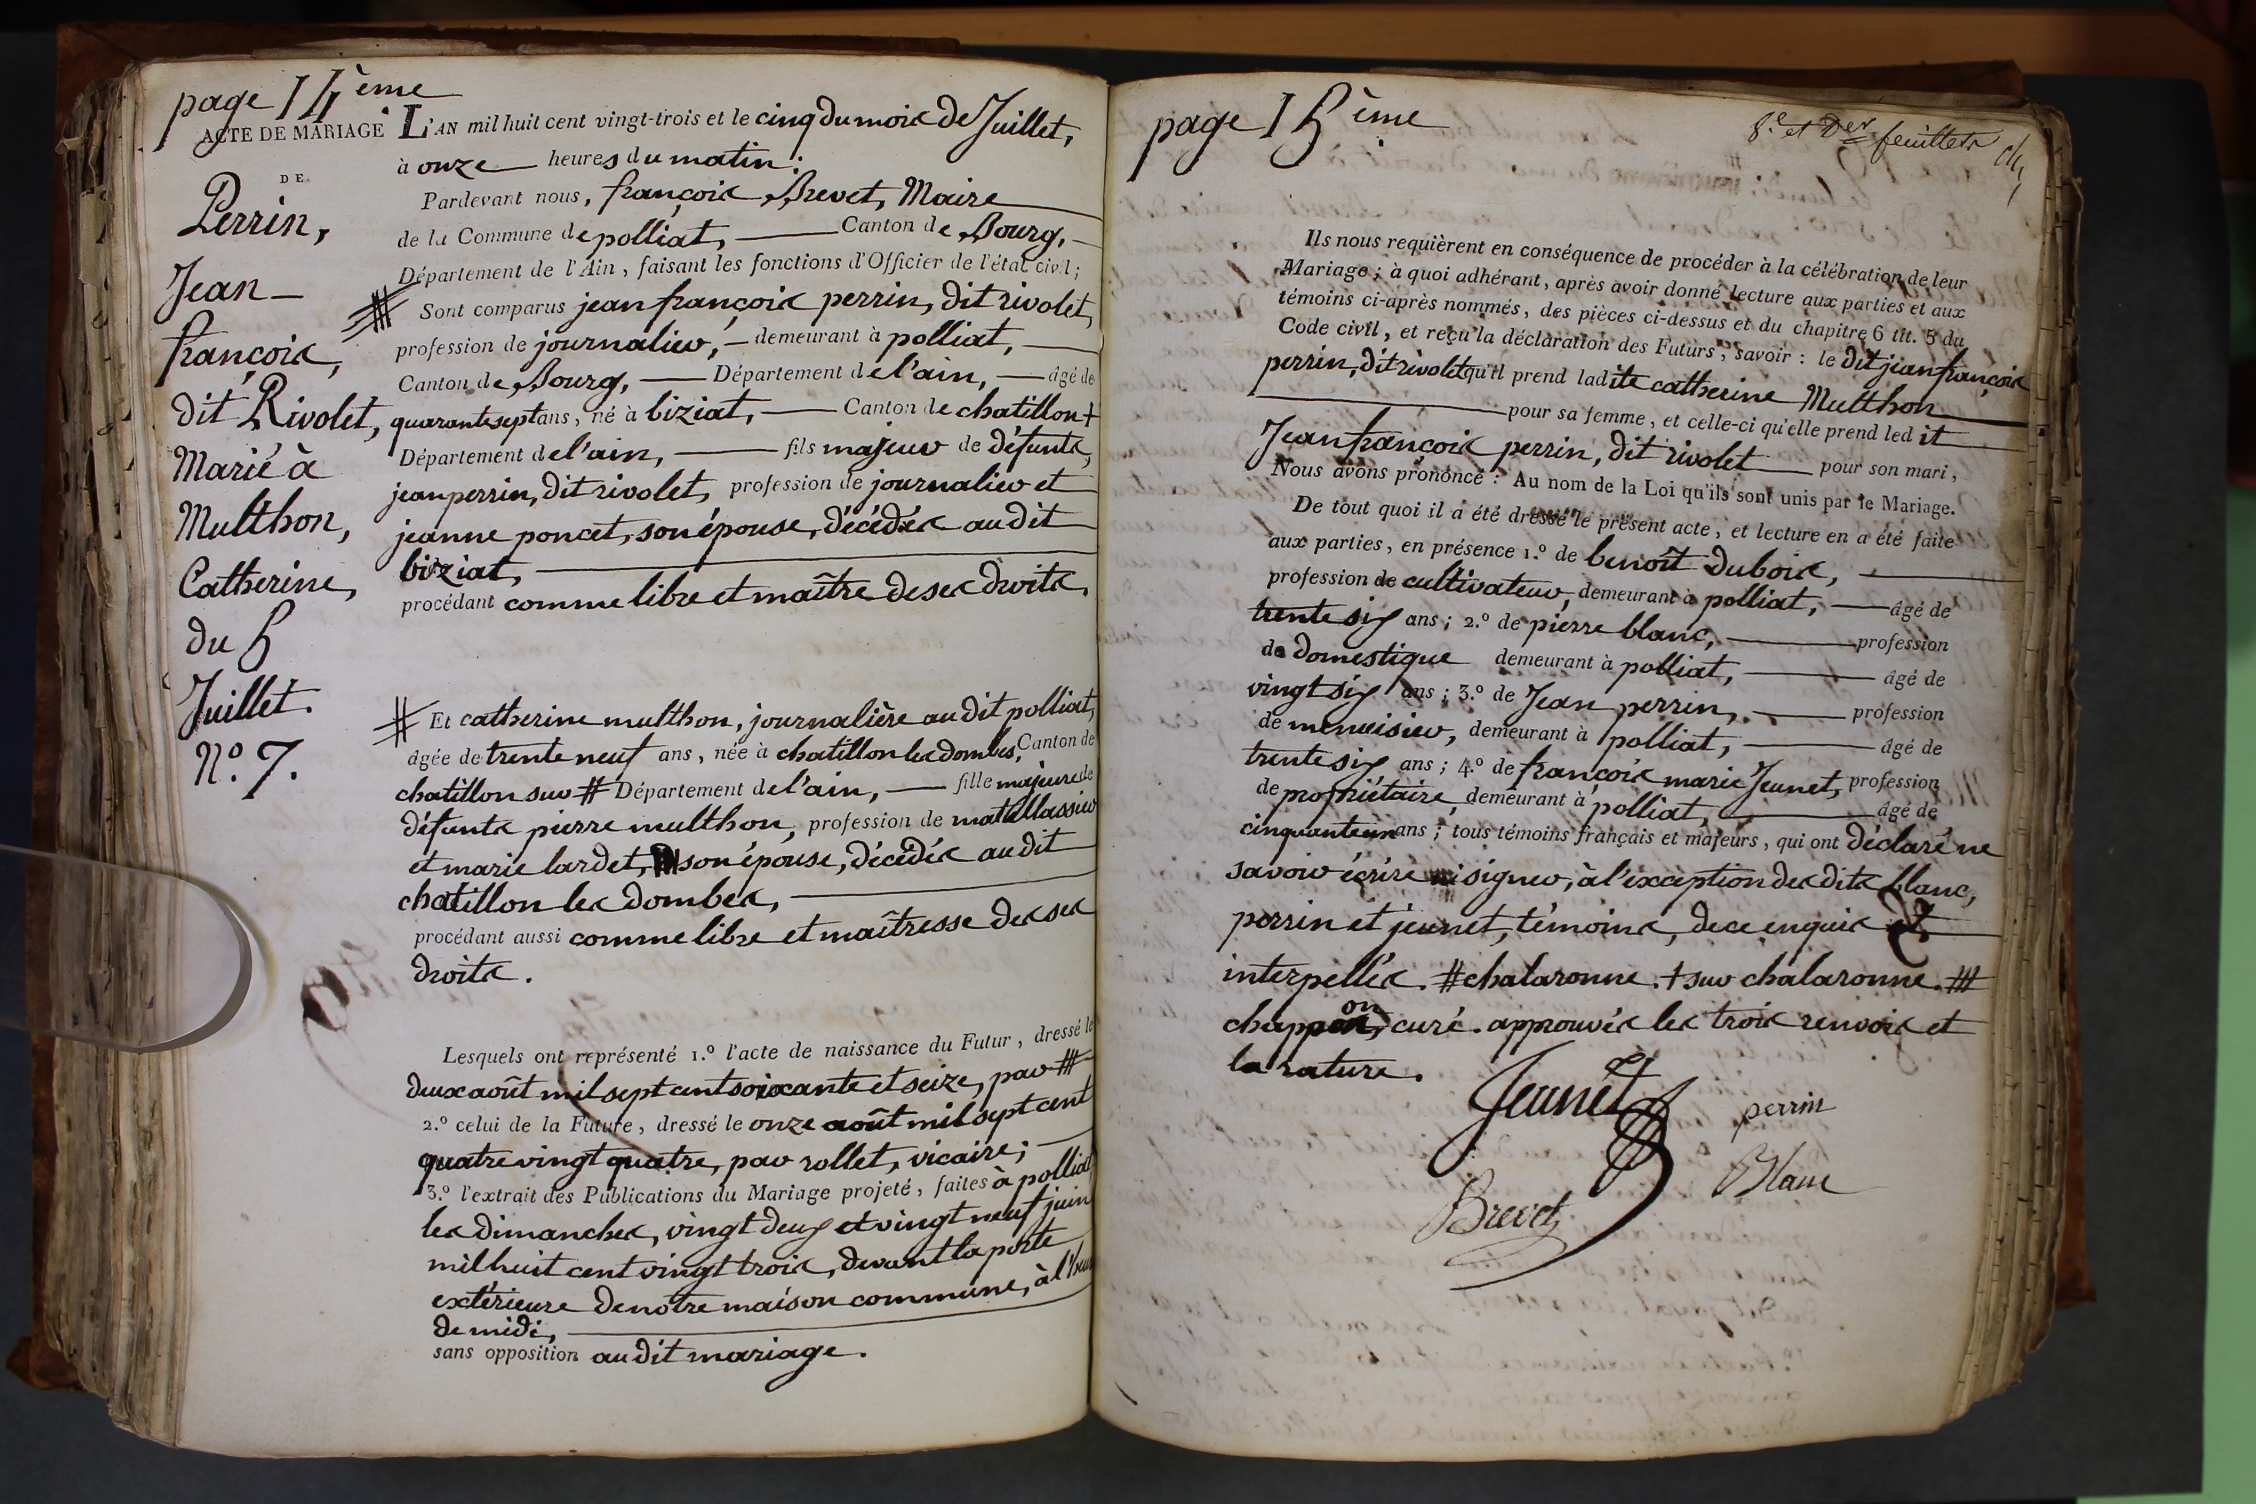 page 14ème
ACTE DE MARIAGE
DE
Perrin,
Jean-
françois,
dit Rivolet,
Marié à
Multhon,
Catherine,
du 5
Juillet.
N.o 7.
L'AN mil huit cent vingt-trois et le cinq du mois de Juillet,
à onze heures du matin.
Pardevant nous, françois Brevet, Maire
de la Commune de polliat, Canton de Bourg,
Département de l'Ain, faisant les fonctions d'Officier de l'état civil;
# Sont comparus jean françois perrin, dit rivolet,
profession de journalier, demeurant à polliat,
Canton de Bourg, Département de l'ain, âgé de
quarante sept ans, né à biziat, Canton de chatillon +
Département de l'ain, fils majeur de défunts,
jean perrin, dit rivolet, profession de journalier et
jeanne poncet, son épouse, décédés audit
biziat,
procédant comme libre et maître de ses droits.
# Et catherine multhon, journalière audit polliat,
âgée de trente neuf ans, née à chatillon les dombes, Canton de
chatillon sur # Département de l'ain, fille majeure de
défunts pierre multhon, profession de matellassier
et marie lardet, son épouse, décédés audit
chatillon les dombes,
procédant aussi comme libre et maîtresse des ses
droits.
Lesquels ont représenté 1.º l'acte de naissance du Futur, dressé le
deux août mil sept cent soixante et seize, par #
2.º celui de la Future, dressé le onze août mil sept cent
quatre vingt quatre, par rollet, vicaire;
3.º l'extrait des Publications du Mariage projeté, faites à polliat
les dimanches, vingt deux et vingt neuf juin
mil huit cent vingt trois, devant la porte
extérieure de notre maison commune, à l'heure
de midi,
sans opposition audit mariage.
page 15ème
8.e et Der feuillets
Ils nous requièrent en conséquence de procéder à la célébration de leur
Mariage; à quoi adhérant, après avoir donné lecture aux parties et aux
témoins ci-après nommés, des pièces ci-dessus et du chapitre 6 tit. 5 du
Code civil, et reçu la déclaration des Futurs, savoir: le dit jean françois
perrin, dit rivolet qu'il prend ladite catherine Multhon
pour sa femme, et celle-ci qu'elle prend ledit
Jean françois perrin, dit rivolet pour son mari,
Nous avons prononcé: Au nom de la Loi qu'ils sont unis par le Mariage.
De tout quoi il a été dressé le présent acte, et lecture en a été faite
aux parties, en présence 1.º de benoît dubois,
profession de cultivateur, demeurant à polliat, âgé de
trente six ans; 2.º de pierre blanc, profession
de domestique demeurant à polliat, âgé de
vingt six ans; 3.º de Jean perrin, profession
de menuisier, demeurant à polliat, âgé de
trente six ans; 4.º de françois marie Jeunet, profession
de propriétaire demeurant à polliat, âgé de
cinquante un ans; tous témoins français et majeurs, qui ont déclaré ne
savoir écrire ni signer, à l'exception des dits blanc,
perrin et jeunet, témoins, de ce enquis et
interpellés. # chalaronne. + sur chalaronne. #
chappon, curé. approuvés les trois renvois et
la rature.
Jeunet
perrin
Blanc
Brevet